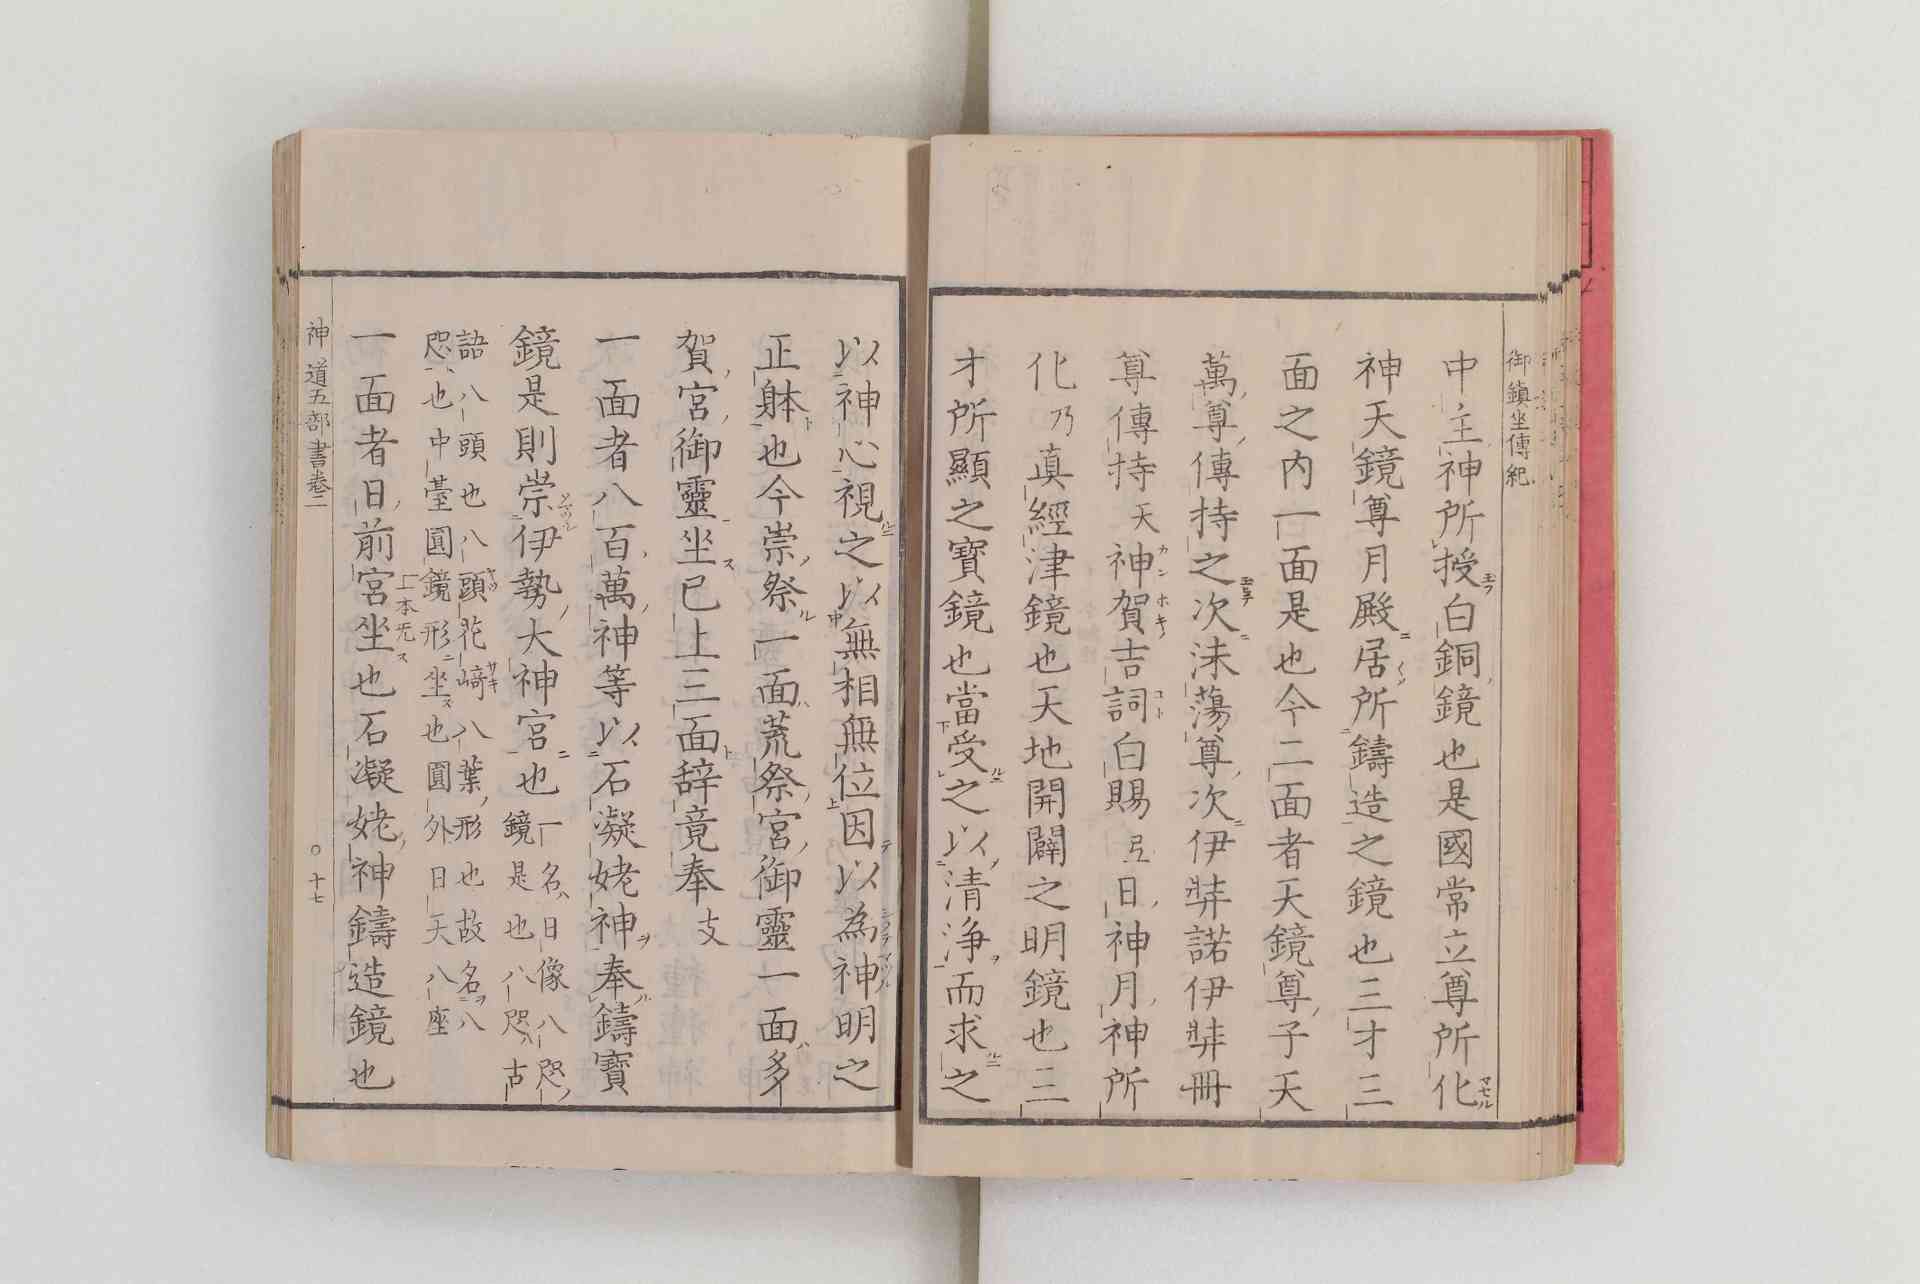 御鎮坐傳紀
中主神所授白銅鏡也是國常立尊所化
神天鏡尊月殿居所鑄造之鏡也三才三
面之内一面是也今二面者天鏡尊子天
萬尊傳持之次沫蕩尊次伊弉諾伊弉冊
尊傳持天神賀吉詞白賜日神月神所
化乃真經津鏡也天地開闢之明鏡也三
才所顯之寶鏡也當受之以清浄而求之
以神心視之以無相無位因以為神明之
正躰也今崇祭一面荒祭宮御靈一面多
賀宮御靈坐已上三面辞竟奉支
一面者八百萬神等以石凝姥神奉鑄寶
鏡是則崇伊勢大神宮也一名日像八咫
鏡是也八咫古
語八頭也八頭花﨑八葉形也故名八
咫也中臺圓鏡形坐也圓外日天八座
一本无
一面者日前宮坐也石凝姥神鑄造鏡也
神道五部書卷二
○十七